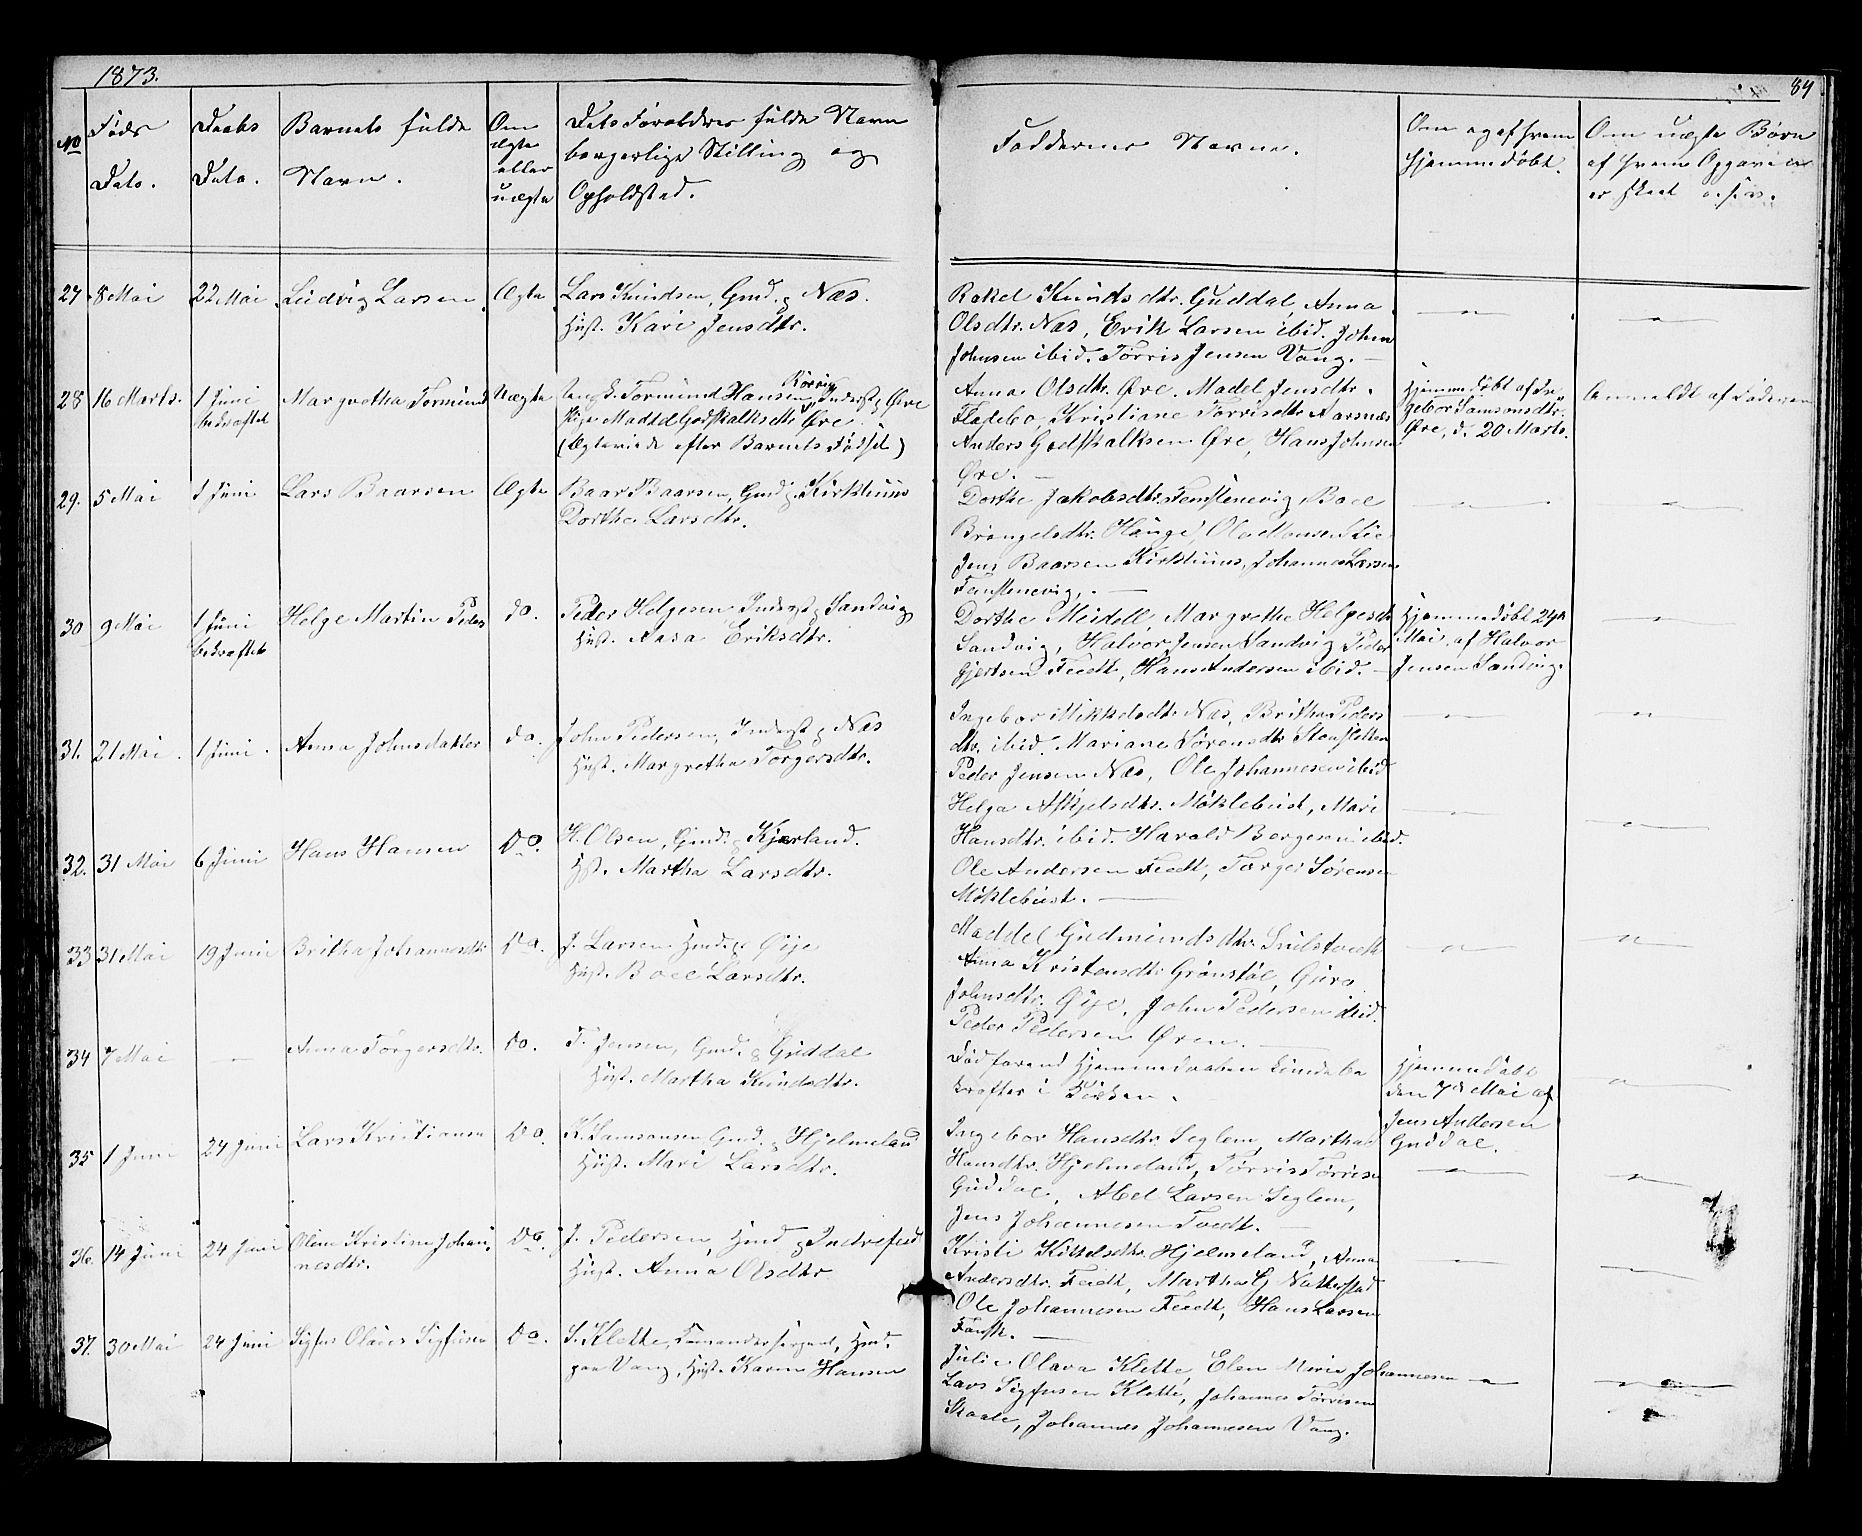 1873.
84
No
Føds
Dato.
Daabs
Dato.
Barnets fulde
Navn.
Om
ægte
eller
uægte
Dets Forældres fulde Navn
borgerlige Stilling og
Opholdsted.
Faddernes Navne.
Om og af hvem
hjemmedøbt.
Om uægte Børn
af hvem Opgaven
er skeet
27 8 Mai 22 Mai Ludvig Larsen Ægte
Lars Knudsen, Gmd. p Næs.
Hust. Kari Jensdtr.
Rakel Knudsdtr. Guddal, Anna
Olsdtr. Næs, Erik Larsen ibid. John
Johnsen ibid. Tørris Jensen Vang.
28 16 Marts. 1 Juni
bekræftet
Margretha Tormund Uægte
Ungk. Tormund Hansen Inderst p Øre
Pige Maddel Godskalksdtr Øre
(Ægteviede efter Barnets Fødsel)
Anna Olsdtr. Øre. Madel Jensdtr.
Flatebø, Kristiane Torrisdtr. Aarsnæs
Anders Godskalksen Øre, Hans Johnsen
Øre.
Hjemmedøbt af In-
gebor Samsonsdtr.
Øre, d. 20 Marts.
Anmeldt af Faderen
29. 5 Mai 1 Juni Lars Baarsen Ægte
Baar Baarsen, Gmd p. Kirkhuus
Dorthe Larsdtr.
Dorthe Jakobsdtr. Femstenevig Boel
Brøngelsdtr. Hauge, Ola Monsen
Jens Baarsen Kirkhuus, Johannes Larsen
Femstenevig.
30 9 Mai 1 Juni
bekræftet
Helge Martin Peders do.
Peder Helgesen Inderst p Sandvig
Hust. Aasa Eriksdtr.
Dorthe Meidell, Margrethe Helgesdtr
Sandvig, Halvor Jensen Sandvig Peder
Gjertsen Tvedt, Hans Andersen ibid.
Hjemmedøbt 24de
Mai, af Halvor
Jensen Sandvig.
31. 21 Mai 1 Juni. Anna Johnsdatter do.
John Pedersen, Inderst p Næs
Hust. Margretha Torgersdtr.
Ingebor Mikkelsdtr Næs, Britha Peders
dtr. ibid. Mariane Sørensdtr
Peder Jensen Næs, Ole Johannesen ibid
32. 31 Mai 6 Juni Hans Hansen Do.
H. Olsen, Gmd. p Kjærland.
Hst. Martha Larsdtr.
Helga Askjelsdtr. Møklebust, Mari
Hansdtr. ibid. Harald Borgesen ibid.
Ole Andersen Tvedt, Torger Sørensen
Møklebust.
33 31 Mai 19 Juni Britha Johannesdtr Do.
J. Larsen Hmd. p Øije
Hust. Boel Larsdtr.
Maddel Gudmundsdtr.
Anna Kristensdtr Grønstøl, Guro
Johnsdtr. Øije, John Pedersen ibid.
Peder Pedersen Øren.
34 7 Mai Anna Torgersdtr. Do.
T. Jensen, Gmd. p Guddal
Hust. Martha Knudsdtr.
Død førend Hjemmedaaben kunde be
kræftes i Kirken.
Hjemmedøbt
den 7de Mai af
Jens Andersen
Guddal.
35 1 Juni 24 Juni Lars Kristiansen Do.
K. Samsonsen Gmd. p Hjelmeland
Hust. Mari Larsdtr.
Ingebor Hansdtr. Seglem, Martha
Hansdtr. Hjelmeland, Tørris Tørrisen
Guddal, Abel Larsen Seglem,
Jens Johannesen Tvedt.
36. 14 Juni 24 Juni Oline Kristine Johan-
nesdtr. Do.
J. Pedersen, Hmd p Indrefied
Hust. Anna Olsdtr
Kristi Kittelsdtr. Hjelmeland, Anna
Andersdtr. Tvedt, Martha G Natterstad
Ole Johannesen Tvedt, Hans Larsen
37. 30 Mai 24 Juni Sigfus Olaus Sigfusen Do.
S. Klette, Comandersergeant, Hmd.
paa Vang, Hust. Karen Hansen
Julie Olava Klette, Elen Marie Johannesen
Lars Sigfusen Klette, Johannes Tørrisen
Skaale, Johannes Johannesen Vang.